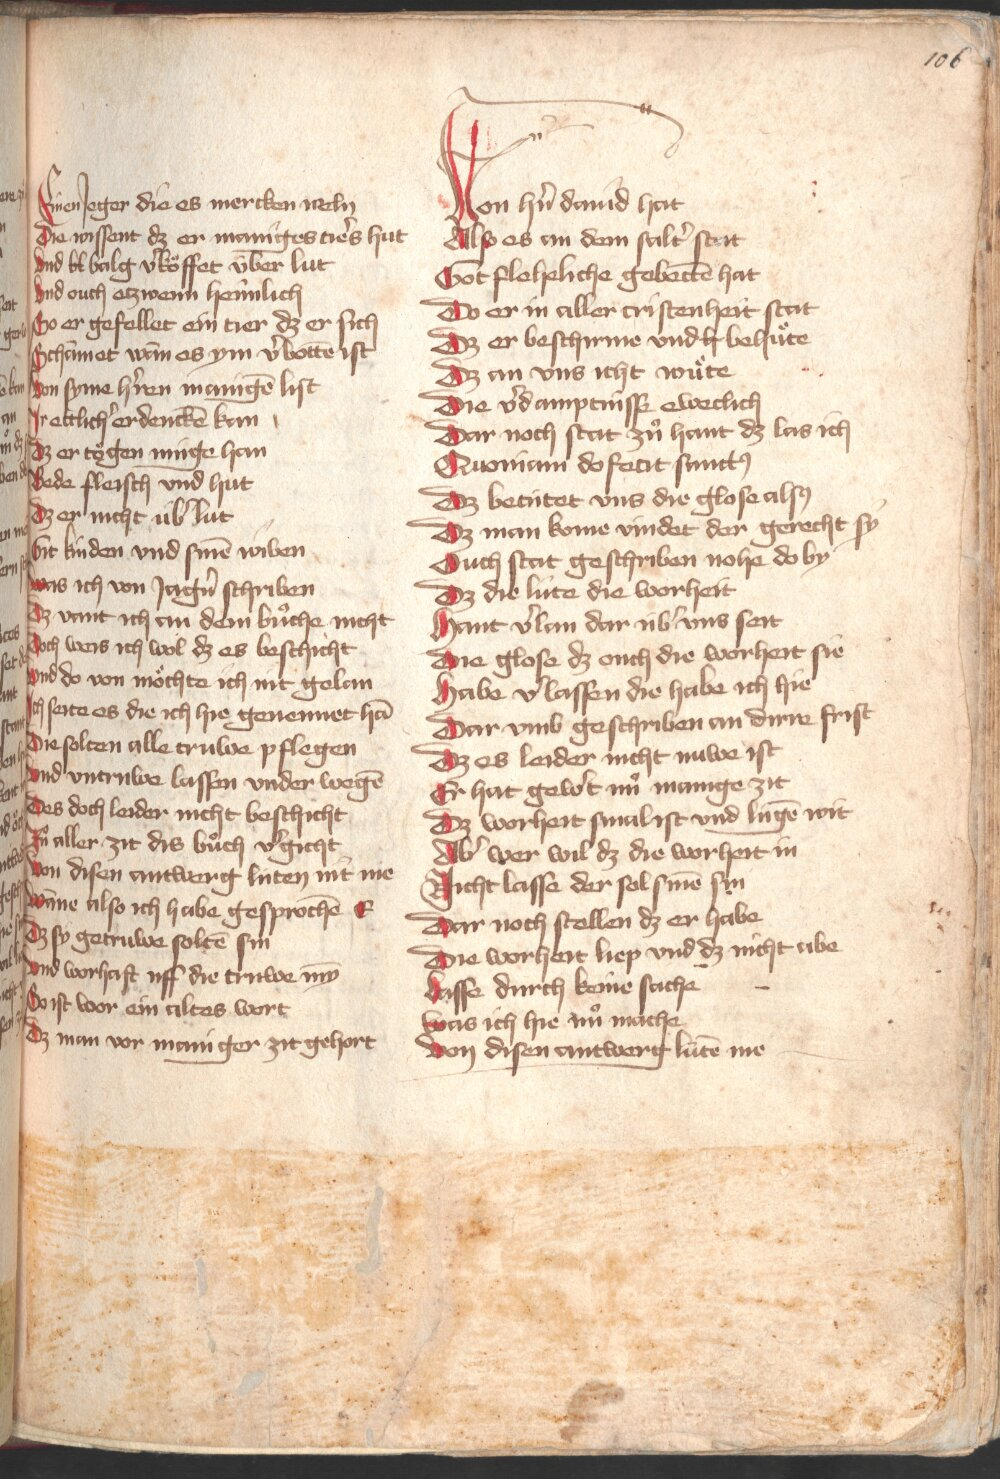 106
Einen Jeger die es mercken weln
Die wissent dz er maniges tie's hut
Vnd balg v'köffet über lut
Vnd ouch etzwenn heimlich
So er gefellet ein tier dz er sich
Schamet wan es ym v'botte ist
Von syme h'ren manigē list
Ir ettlich' erdenckē kan
Dz er tögen müge han
Bede fleisch vnd hut
Dz er nicht üb' lut
Git kinden vnd sinē wiben
Was ich von Jag'n schriben
Dz vant ich an dem bůche nicht
Doch weis ich wol dz es beschicht
Vnd do von möchte ich nit gelan
Ich seite es die ich hie genennet hā
Die solten alle truwe pflegen
Vnd vntruwe lassen vnder wegē
Des doch leider nicht beschicht
Zů aller zit dis bůch v'gicht
Von disen antwerg lüten nit me
Wāne also ich habe gesprochē E
Dz sy getruwe soltē sin
Vnd worhaft uff die truwe my
So ist wor ein altes wort
Dz man vor maniger zit gehort
Von h'n dauid hat
Also es an dem salt' stat
Got flehliche gebettē hat
Do er in aller cristenheit stat
Dz er beschirme vnd behüte
Dz an vns icht wüte
Die v'dampnisse eweclich
Dar noch stat zů hant dz las ich
Quoniam defecit sanctus
Dz betütet vns die glose alsus
Dz man kome vindet der gerecht sy
Ouch stat geschriben nohe do by
Dz die lüte die worheit
Hant v'lan dar üb' vns seit
Die glose dz ouch die worheit sie
Habe v'lassen die habe ich hie
Dar vmb geschriben an dirre frist
Dz es leider nicht nuwe ist
Er hat gew't nů manige zit
Dz worheit smal ist vnd lügē wit
Ab' wer wil dz die worheit in
Nicht lasse der sol sinē sin
Dar noch stellen dz er habe
Die worheit liep vnd dz nicht abe
Lasse durch keine sache
Was ich hie nů mache
Von disen antwerg lütē me